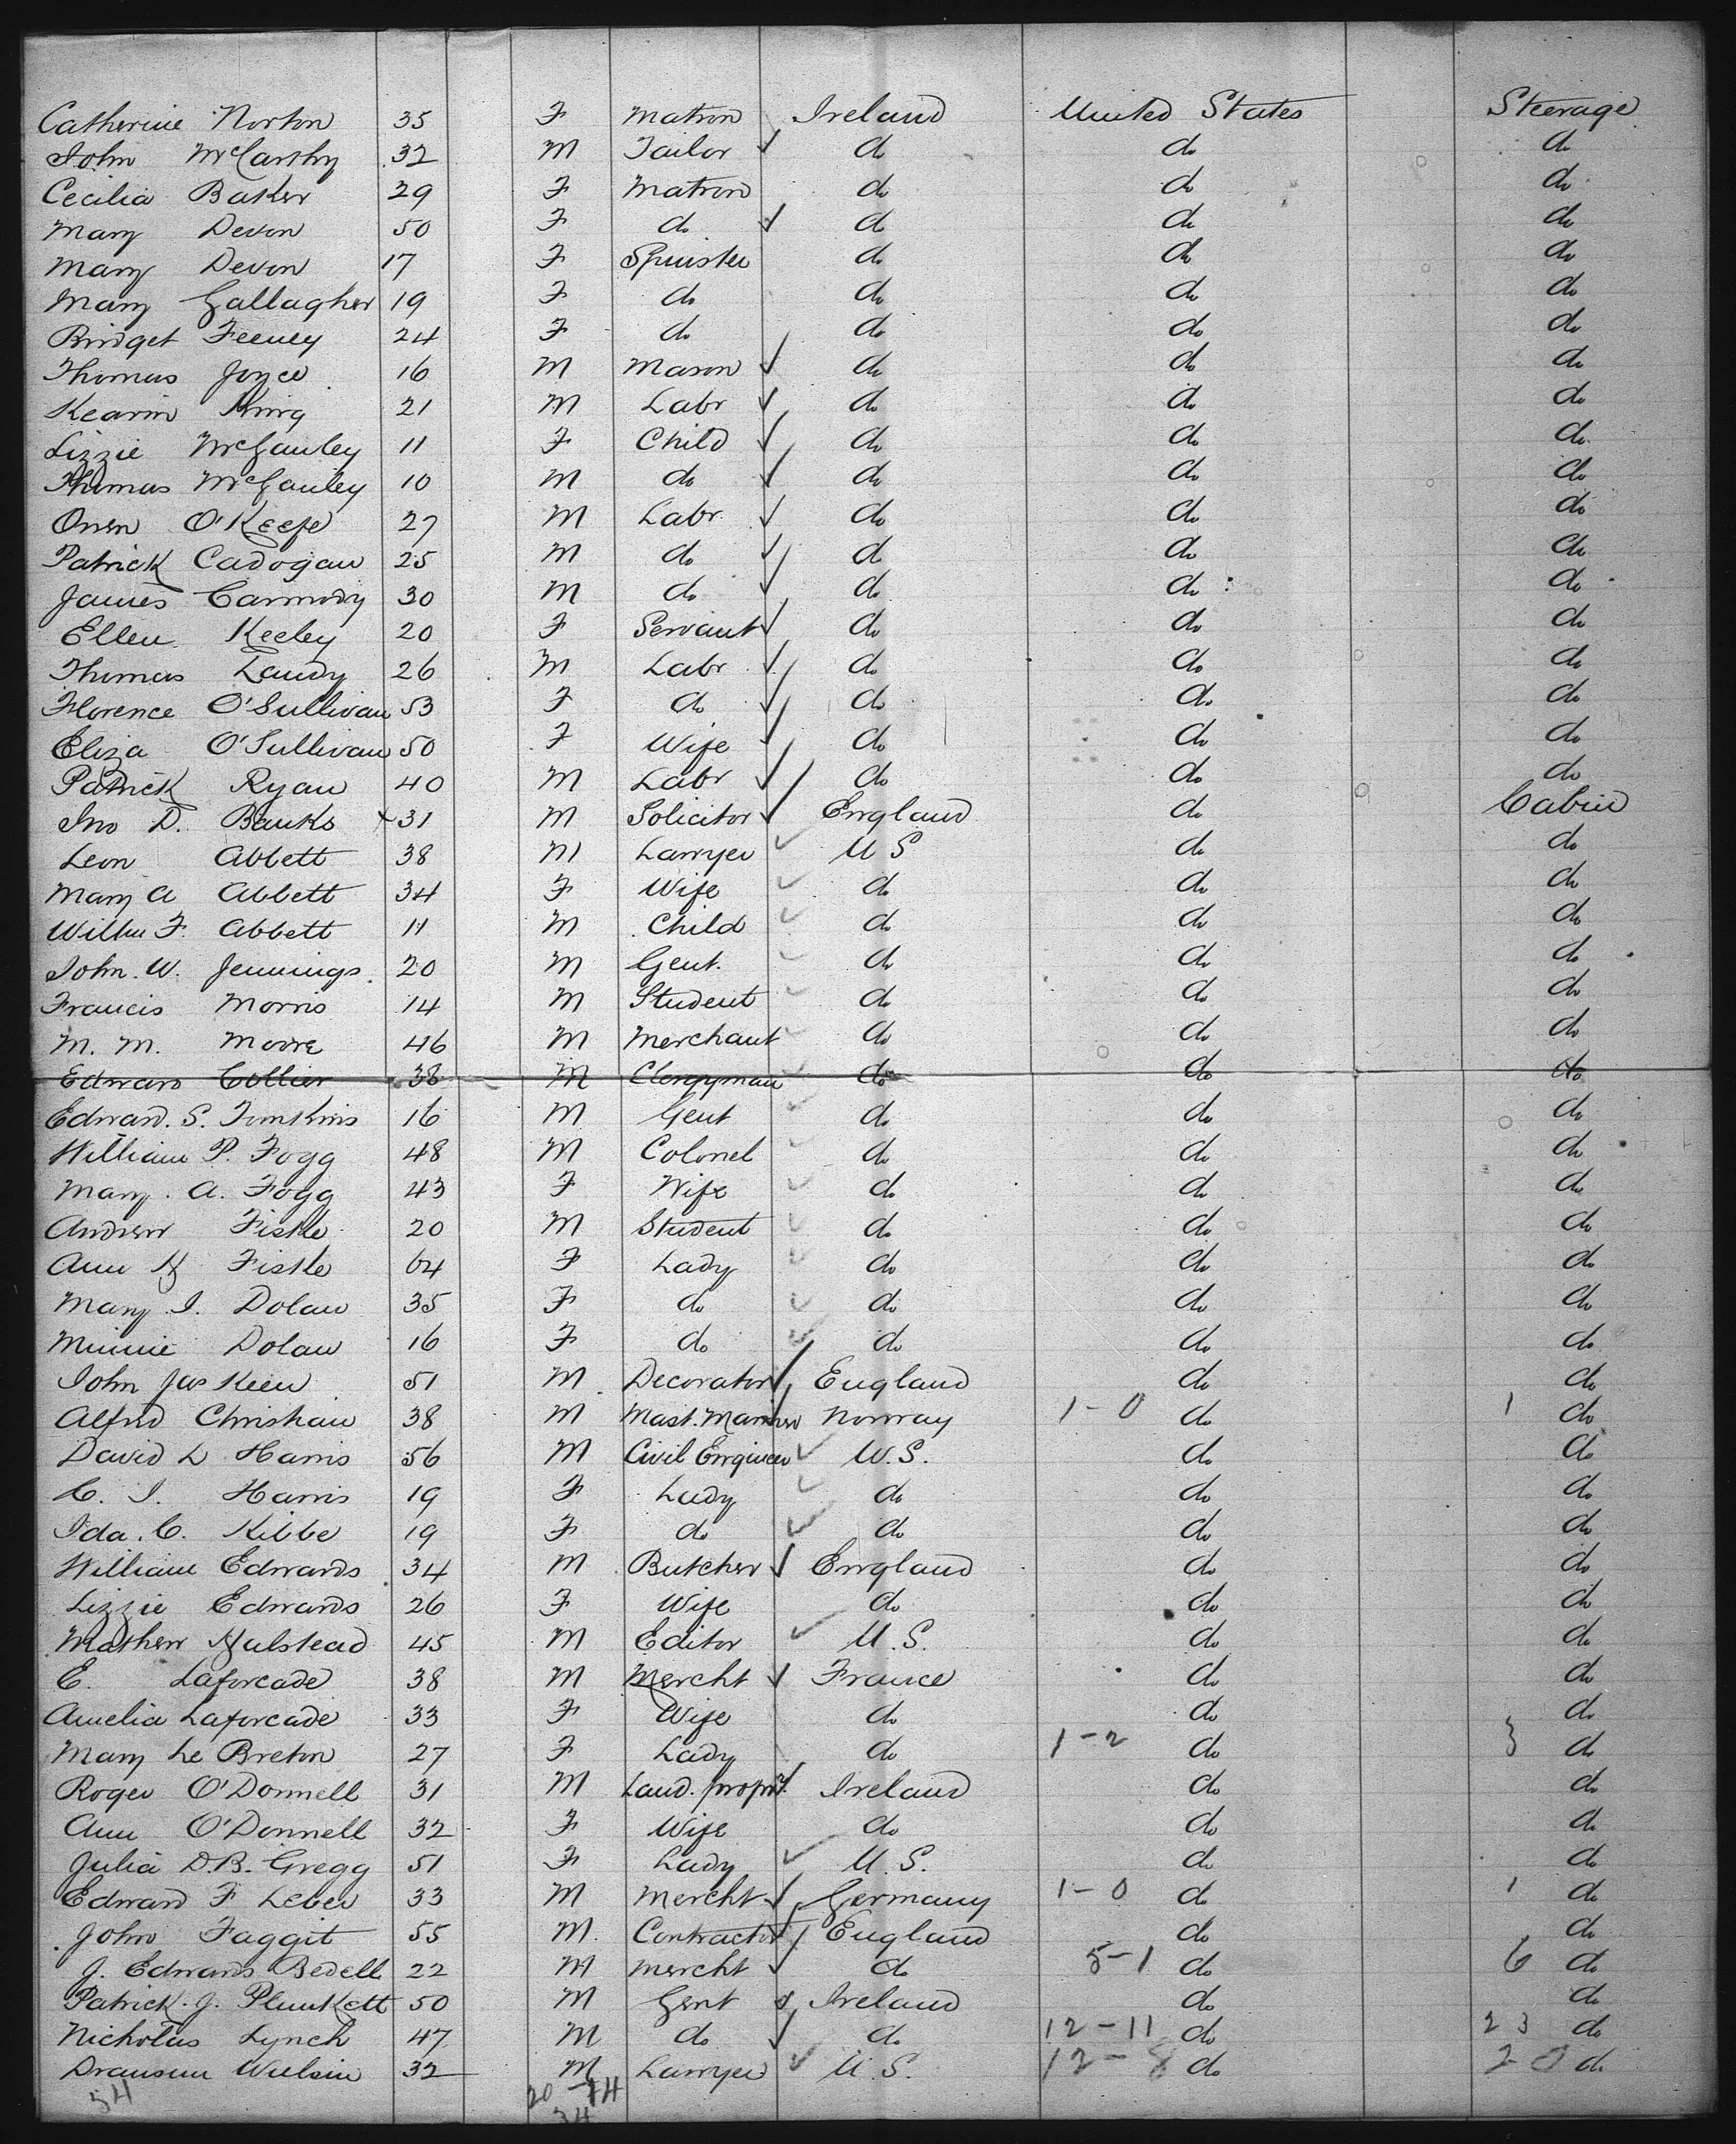 Catherine Norton 35 F Matron Ireland United States Steerage
John McCarthy 32 M Tailor do do do
Cecilia Baker 29 F Matron do do do
Mary Devon 50 F do do do do
Mary Devon 17 F Spinster do do do
Mary Gallagher 19 F do do do do
Bridget Feeney 24 F do do do do
Thomas Joyce 16 M Mason do do do
Kearin King 21 M Labr do do do
Lizzie McGauley 11 F Child do do do
Thomas McGauley 10 M do do do do
Owen O'Keefe 27 M Labr do do do
Patrick Cadogan 25 M do do do do
James Carmody 30 M do do do do
Ellen Keeley 20 F Servant do do do
Thomas Landy 26 M Labr do do do
Florence O'Sullivan 53 F do do do do
Eliza O'Sullivan 50 F Wife do do do
Patrick Ryan 40 M Labr do do do
Jno D. Banks x 31 M Solicitor England do Cabin
Leon Abbett 38 M Lawyer U S do do
Mary A Abbett 34 F Wife do do do
Willm F. Abbett 11 M Child do do do
John W. Jennings 20 M Gent. do do do
Francis Morris 14 M Student do do do
M. M. Moore 46 M Merchant do do do
Edward Collier 38 M Clergyman do do do
Edward. S. Tomkins 16 M Gent do do do
William P. Fogg 48 M Colonel do do do
Mary. A. Fogg 43 F Wife do do do
Andrew Fiske 20 M Student do do do
Ann H Fiske 64 F Lady do do do
Mary I. Dolan 35 F do do do do
Minnie Dolan 16 F do do do do
John Jas Keen 51 M Decorator England do do
Alfred Christian 38 M Mast. Mariner Norway 1-0 do 1 do
David L Harris 56 M Civil Engineer U.S. do do
C. I. Harris 19 F Lady do do do
Ida. C. Kibbe 19 F do do do do
William Edwards 34 M Butcher England do do
Lizzie Edwards 26 F Wife do do do
Mathew Halstead 45 M Editor U.S. do do
E. Laforcade 38 M Mercht France do do
Amelia Laforcade 33 F Wife do do do
Mary Le Breton 27 F Lady do 1-2 do 3 do
Roger O'Donnell 31 M Land. propr. Ireland do do
Ann O'Donnell 32 F Wife do do do
Julia D.B. Gregg 51 F Lady U.S. do do
Edward F Leber 33 M Mercht Germany 1-0 do 1 do
John Faggit 55 M. Contractor England do do
J. Edwards Bedell 22 M Mercht do 5-1 do 6 do
Patrick. J. Plunkett 50 M Gent Ireland do do
Nicholas Lynch 47 M do do 12-11 do 23 do
Wulsin 32 M Lawyer U.S. 12-8 do 20 do
54 20-14
34